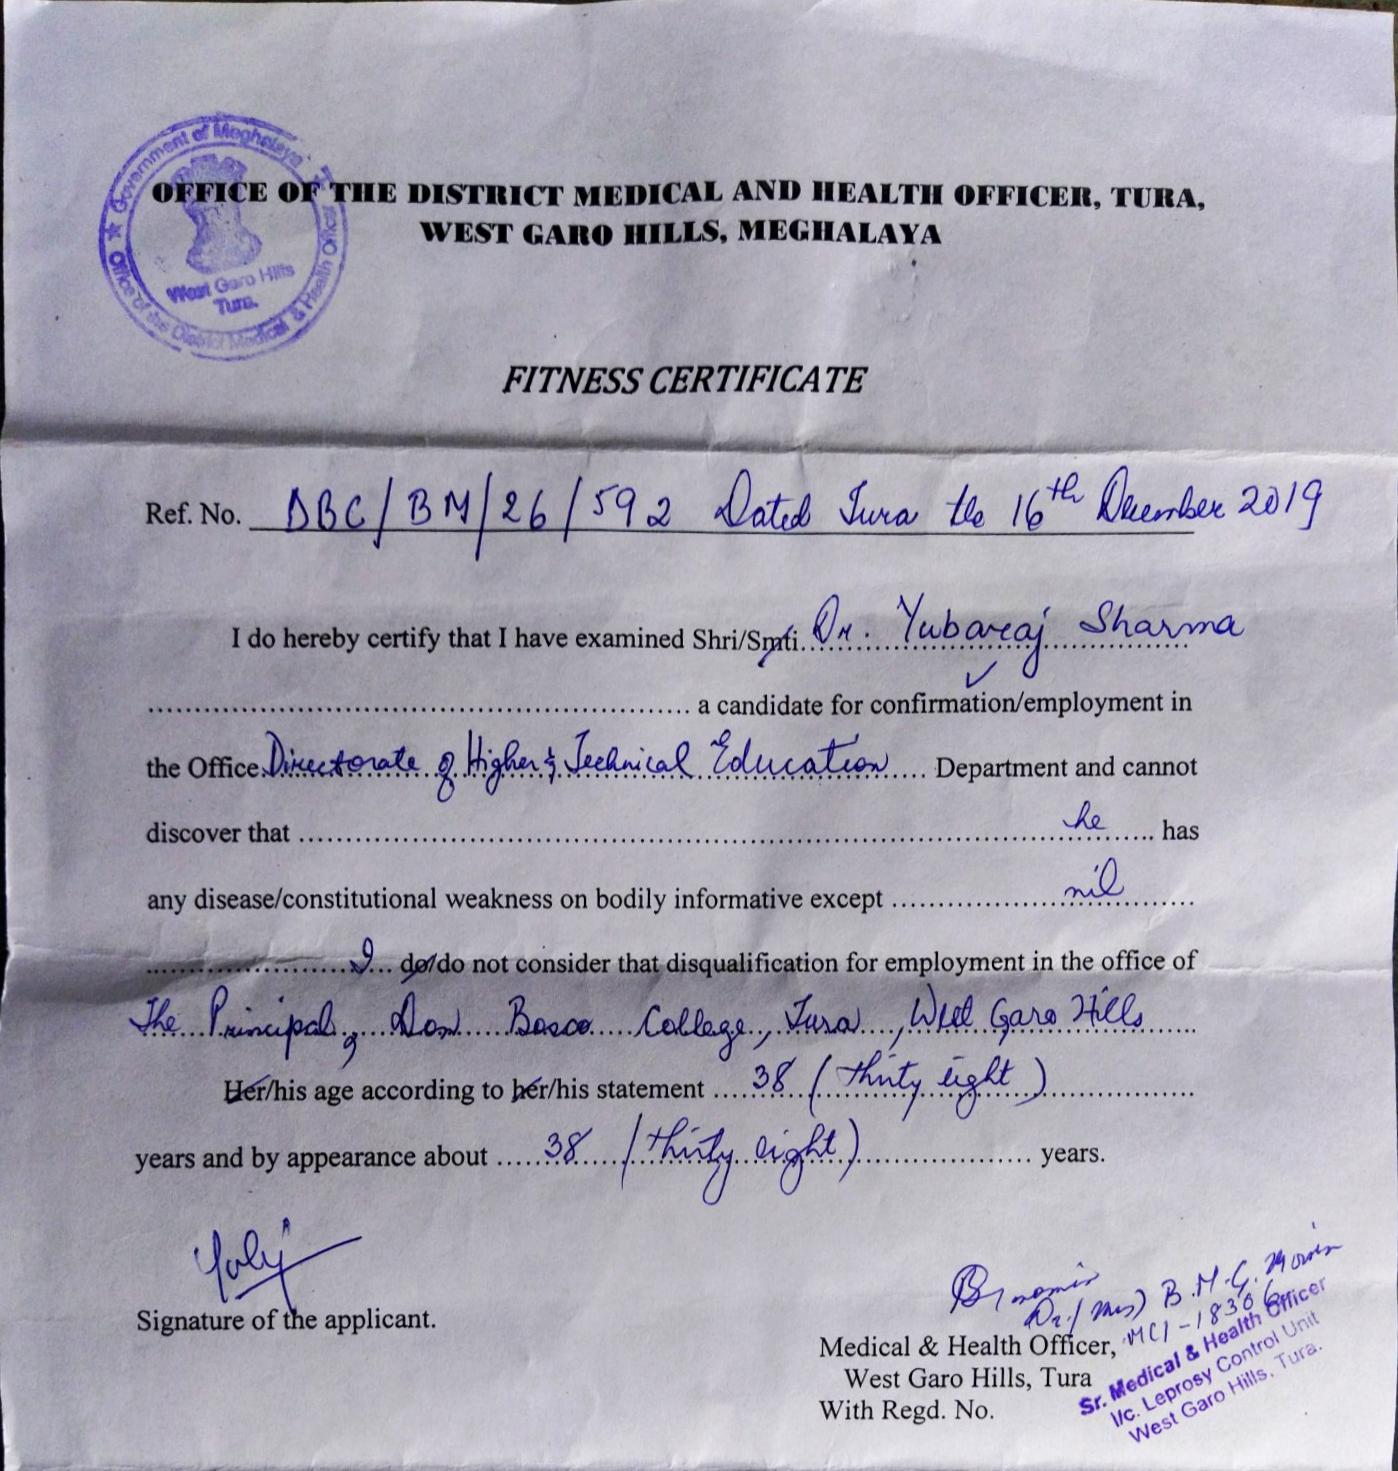 Government of Meghalaya
Office of the District Medical & Health Officer
West Garo Hills
Tura.
OFFICE OF THE DISTRICT MEDICAL AND HEALTH OFFICER, TURA,
WEST GARO HILLS, MEGHALAYA
FITNESS CERTIFICATE
Ref. No. DBC/BM/26/592 Dated Tura the 16th December 2019
I do hereby certify that I have examined Shri/Smti. Dr. Yubaraj Sharma
........ a candidate for confirmation/employment in
the Office Directorate of Higher & Technical Education .... Department and cannot
discover that ........ he .... has
any disease/constitutional weakness on bodily informative except ........ nil ........
........ I... do/do not consider that disqualification for employment in the office of
The Principal, Don Bosco College, Tura, West Garo Hills
Her/his age according to her/his statement .... 38 (thirty eight) ........
years and by appearance about .... 38 (thirty eight) ........ years.
Signature of the applicant.
Dr. (Mrs) B.M.G. Momin
Medical & Health Officer, MCI-18306
West Garo Hills, Tura
With Regd. No.
Sr. Medical & Health Officer
I/c. Leprosy Control Unit
West Garo Hills, Tura.